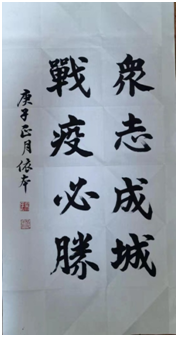 眾志成城
戰疫必勝
庚子正月依本